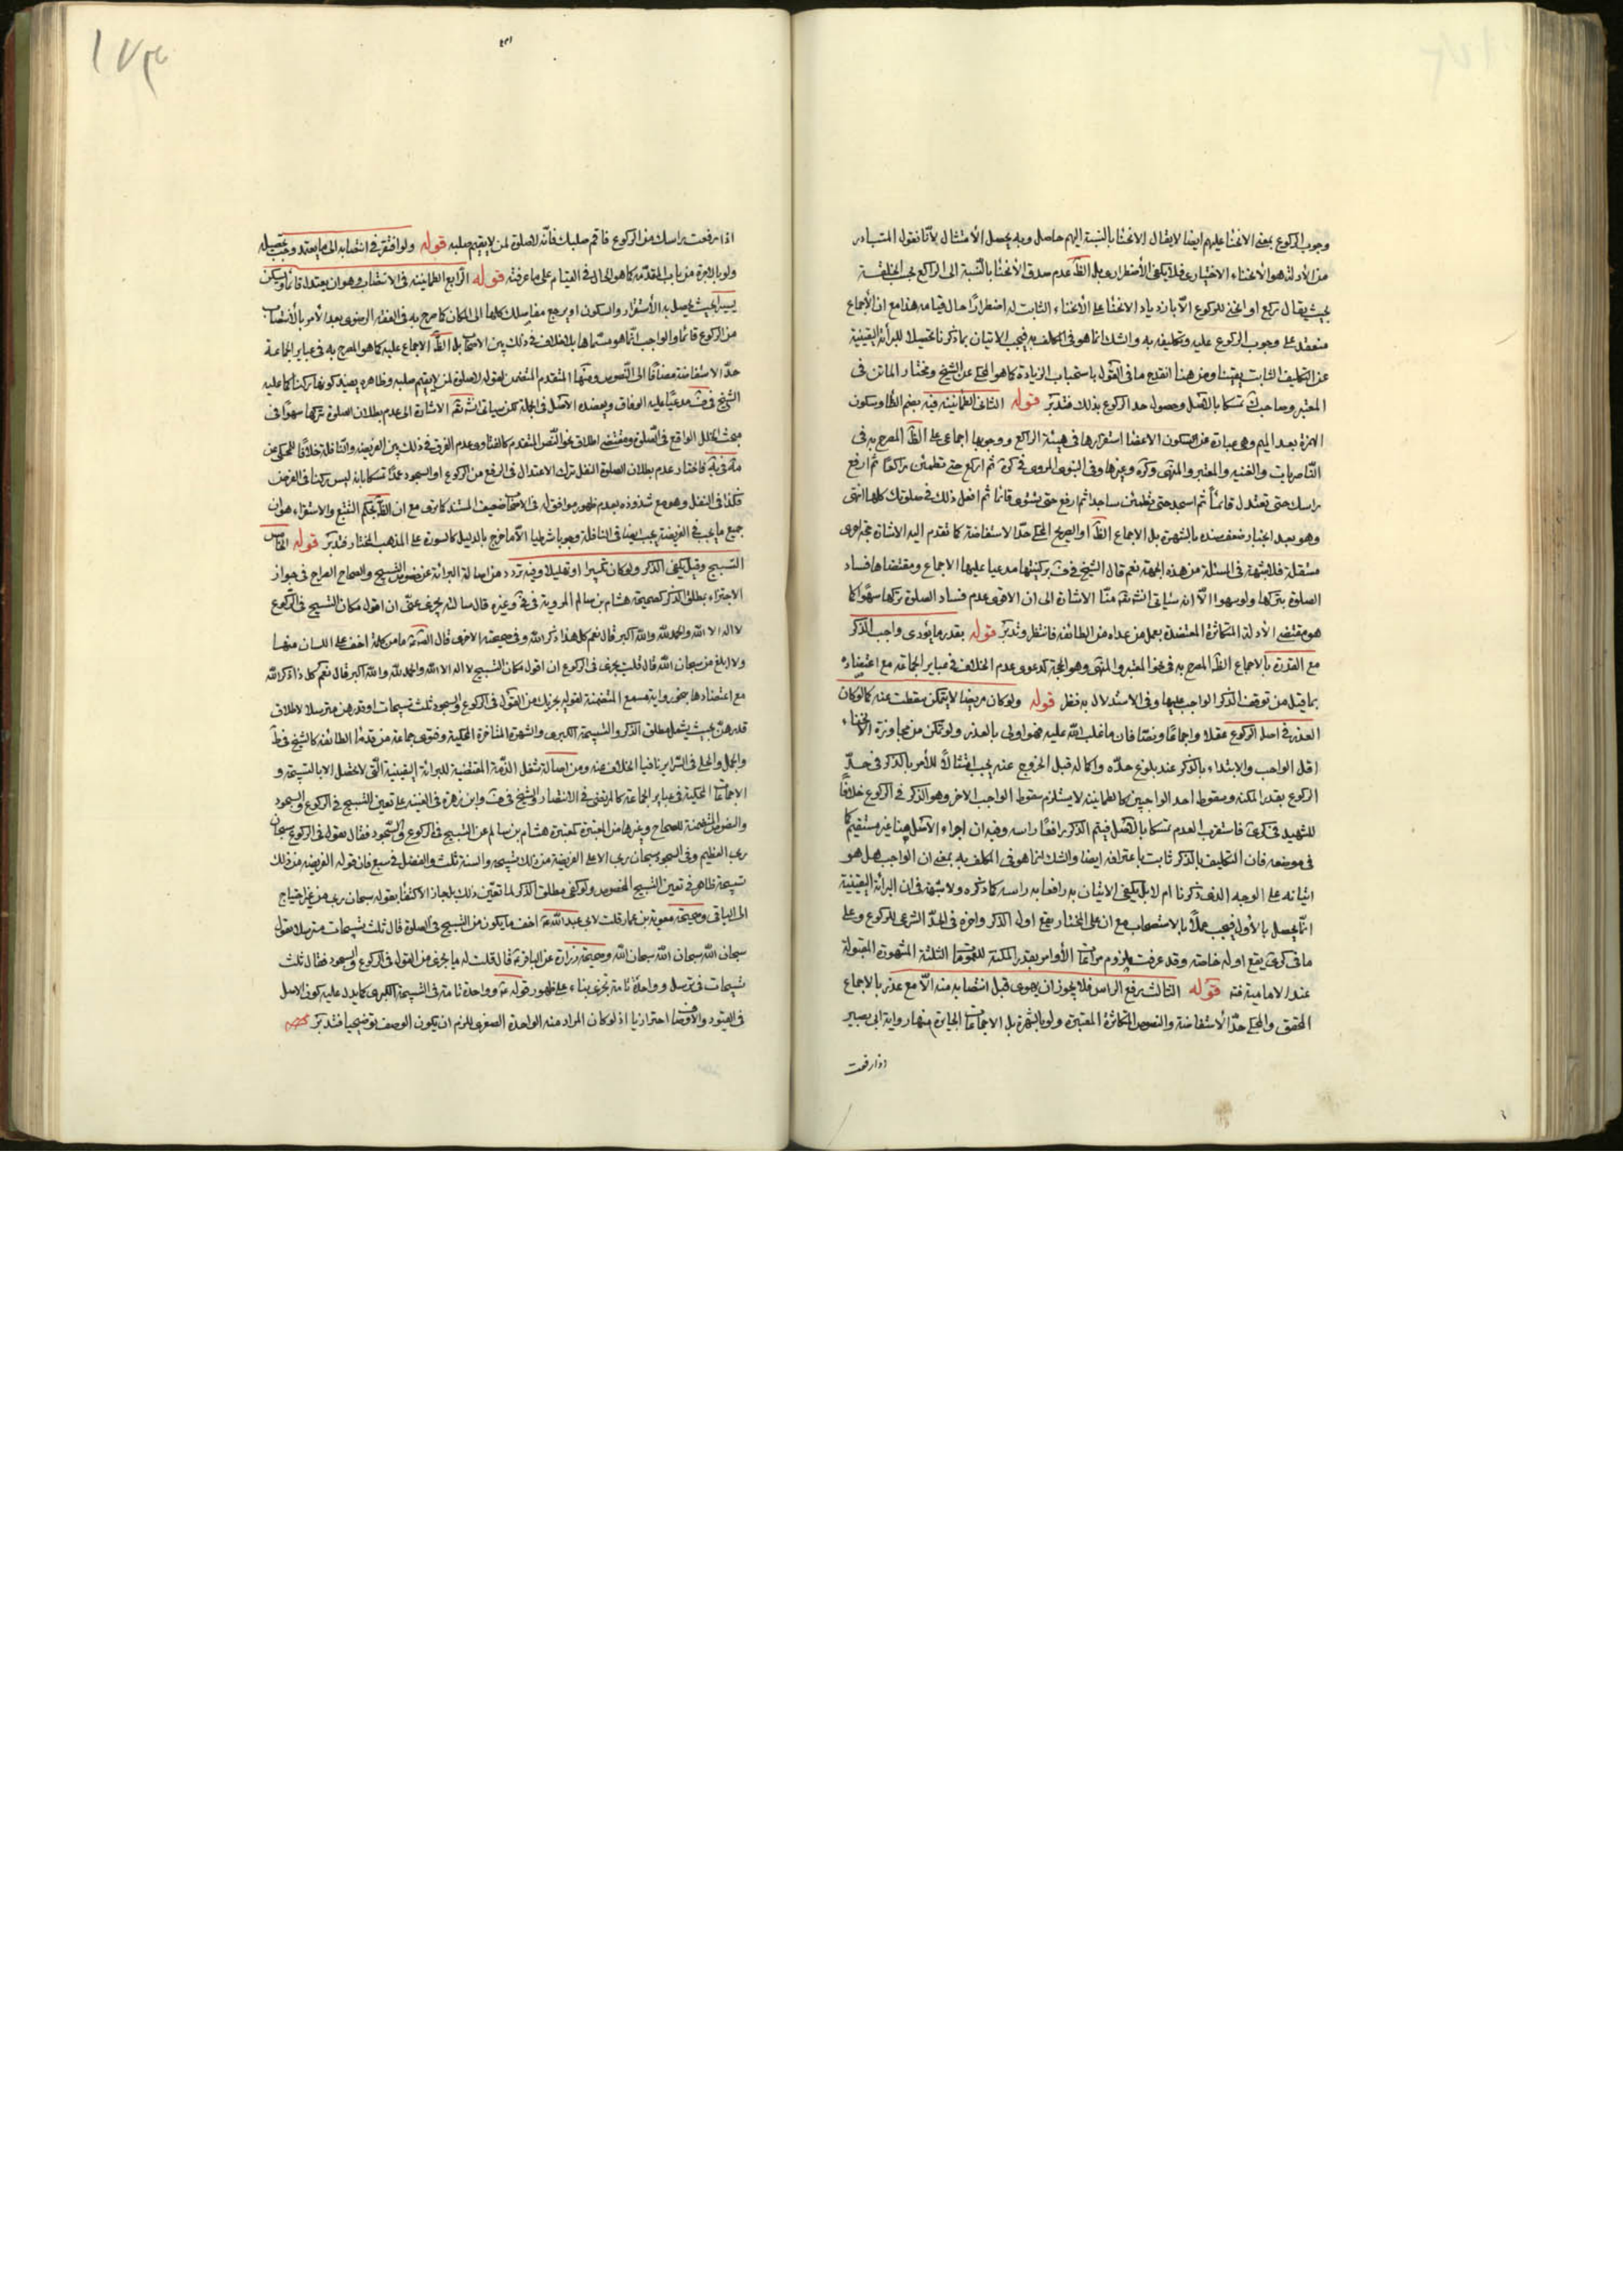 وجوب الركوع بمعنى الانحنا عليهم ايضا لا يقال الانحنا بالنسبة اليهم حاصل وبه يحصل الامتثال لانا نقول المتبادر
من الادلة هو الانحناء الاختيارى فلا يكفى الاضطرارى بل الظ عدم صدق الانحنا بالنسبة الى الراكع بحسب الخلقة
بحيث يقال ركع او انحنى للركوع الا بازدياد الانحنا على الانحناء الثابت له اضطرارا حال قيامه هذا مع ان الاجماع
منعقد على وجوب الركوع عليه وتكليفه به والشك انما هو فى المكلف به فيجب الاتيان بما ذكرنا تحصيلا للبرائة اليقينية
عن التكليف الثابت يقينا ومن هنا انقدح ما فى القول باستحباب الزيادة كما هو المحكى عن الشيخ ومختار الماتن فى
المعتبر وصاحب ك تمسكا بالاصل وحصول حد الركوع بذلك فتدبر قوله الثانى الطمانينة فيه بضم الطا وسكون
الهمزة بعد الميم وهى عبارة عن سكون الاعضا استقرارها فى هيئة الراكع ووجوبها اجماعى على الظ المصرح به فى
الناصريات والغنية والمعتبر والمنتهى وكره وغيرها وفى النبوى المروى فى كرى ثم اركع حتى تطمئن راكعا ثم ارفع
راسك حتى تعتدل قائما ثم اسجد حتى تطمئن ساجدا ثم ارفع حتى تستوى قائما ثم افعل ذلك فى صلوتك كلها انتهى
وهو بعد انجبار ضعف سنده بالشهرة بل الاجماع الظ او الصريح المحكى حد الاستفاضة كما تقدم اليه الاشارة حجة اخرى
مستقلة فلا شبهة فى المسئلة من هذه الجهة نعم قال الشيخ فى ف بركنيتها مدعيا عليها الاجماع ومقتضاها فساد
الصلوة بتركها ولو سهوا الا انه سياتى انش تعم منا الاشارة الى ان الاقوى عدم فساد الصلوة بتركها سهوا كما
هو مقتضى الادلة المتكاثرة المعتضدة بعمل من عداه من الطائفة فانتظر وتدبر قوله بقدر ما يؤدى واجب الذكر
مع القدرة بالاجماع الظ المصرح به فى نحو المعتبر والمنتهى وهو الحجة كدعوى عدم الخلاف فى عباير الجماعة مع اعتضاده
بما قيل من توقف الذكر الواجب عليها وفى الاستدلال به نظر قوله ولو كان مريضا لا يتمكن سقطت عنه كما لو كان
العذر فى اصل الركوع عقلا واجماعا ونصا فان ما غلب الله عليه فهو اولى بالعذر ولو تمكن من مجاوزة الانحناء
اقل الواجب والابتداء بالذكر عند بلوغ حده واكماله قبل الخروج عنه يجب امتثالا للامر بالذكر فى حد
الركوع بقدر المكنة وسقوط احد الواجبين كالطمانينة لا يستلزم سقوط الواجب الاخر وهو الذكر فى الركوع خلافا
للشهيد فى كرى فاستقرب العدم تمسكا بالاصل فيتم الذكر رافعا راسه وفيه ان اجراء الاصل هنا غير مستقيم كما
فى موضعه فان التكليف بالذكر ثابت باعترافه ايضا والشك انما هو فى المكلف به بمعنى ان الواجب هل هو
اتيانه على الوجه الذى ذكرنا ام لا بل يكفى الاتيان به رافعا به راسه كما ذكره ولا شبهة فى ان البرائة اليقينية
انما يحصل بالاول فيجب عملا بالاستصحاب مع ان على المختار يقع اول الذكر واخره فى الحد الشرعى للركوع وعلى
ما فى كرى يقع اوله خاصة وقد عرفت لزوم مراعات الاوامر بقدر المكنة للعمومات الثلثة المشهورة المقبولة
عند الامامية فته قوله الثالث رفع الراس فلا يجوز ان يهوى قبل انتصابه منه الا مع عذر بالاجماع
المحقق والمحكى حد الاستفاضة والنصوص المتكاثرة المعتبرة ولو بالشهرة بل الاجماعات الجابرة منها رواية ابى بصير
اذا رفعت
اذا رفعت راسك من الركوع فاقم صلبك فانه لا صلوة لمن لا يقيم صلبه قوله ولو افتقر فى انتصابه الى ما يعتمد وجب تحصيله
ولو بالاجرة من باب المقدمة كما هو الحال فى القيام على ما عرفته قوله الرابع الطمانينة فى الانتصاب وهو ان يعتدل قائما ويسكن
يسيرا بحيث يحصل به الاستقرار والسكون او يرجع مفاسلك كلها الى المكان كما صرح به فى الفقه الرضوى بعد الامر بالانتصاب
من الركوع قائما والواجب انما هو مسماها بلا خلاف فى ذلك بين الاصحاب بل الظ الاجماع عليه كما هو المصرح به فى عباير الجماعة
حد الاستفاضة مضافا الى النصوص ومنها المتقدم المتضمن لقوله لا صلوة لمن لا يقيم صلبه وظاهره يفيد كونها ركنا كما عليه
الشيخ فى ف مدعيا عليه الوفاق ويعضده الاصل فى الجملة لكن سياتى انش تعم الاشارة الى عدم بطلان الصلوة بتركها سهوا فى
مبحث الخلل الواقع فى الصلوة ومقتضى اطلاق نحو النص المتقدم كالفتاوى عدم الفرق فى ذلك بين الفريضة والنافلة خلافا للمحكى عن
مة فى ية فاختار عدم بطلان الصلوة النفل بترك الاعتدال فى الرفع من الركوع او السجود عمدا تمسكا بانه ليس ركنا فى الفرض
فكذا فى النفل وهو مع شذوذه بعدم ظهور موافق له فى الاصحاب ضعيف المستند كما ترى مع ان الظ بحكم التتبع والاستقراء هو ان
جميع ما يجب فى الفريضة يجب ايضا فى النافلة وجوبا شرطيا الا ما خرج بالدليل كالسورة على المذهب المختار فتدبر قوله الخامس
التسبيح وقيل يكفى الذكر ولو كان تكبيرا او تهليلا وفيه تردد من اصالة البرائة عن خصوص التسبيح والصحاح الصراح فى جواز
الاجتزاء بمطلق الذكر كصحيحة هشام بن سالم المروية فى فى وغيره قال سالته يجزى عنى ان اقول مكان التسبيح فى الركوع
لا اله الا الله والحمد لله والله اكبر قال نعم كل هذا ذكر الله وفى صحيحته الاخرى قال الصم ما من كلمة اخف على اللسان منها
ولا ابلغ من سبحان الله قال قلت يجزى فى الركوع ان اقول مكان التسبيح لا اله الا الله والحمد لله والله اكبر قال نعم كل ذا ذكر الله
مع اعتضادها بنحو رواية مسمع المتضمنة لقوله يجزيك من القول فى الركوع والسجود ثلث تسبيحات او قدرهن مترسلا لاطلاق
قدرهن بحيث يشمل مطلق الذكر والتسبيحة الكبرى والشهرة المتاخرة المحكية وفتوى جماعة من قدماء الطائفة كالشيخ فى ط
والجمل والحلى فى السراير نافيا الخلاف عنه ومن اصالة شغل الذمة المقتضية للبرائة اليقينية التى لا تحصل الا بالتسبيحة و
الاجماعات المحكية فى عباير الجماعة كالمرتضى فى الانتصار والشيخ فى ف وابن زهرة فى الغنية على تعين التسبيح فى الركوع والسجود
والنصوص المتضمنة للصحاح وغيرها من المعتبرة كمعتبرة هشام بن سالم عن التسبيح فى الركوع والسجود فقال يقول فى الركوع سبحان
ربى العظيم وفى السجود سبحان ربى الاعلى الفريضة من ذلك تسبيحة والسنة ثلث والفضل فى سبع فان قوله الفريضة من ذلك
تسبيحة ظاهر فى تعين التسبيح المخصوص ولو كفى مطلق الذكر لما تعين ذلك بل جاز الاكتفا بقوله سبحان ربى من غير احتياج
الى الباقى وصحيحة معوية بن عمار قلت لابى عبد الله ع اخف ما يكون من التسبيح فى الصلوة قال ثلث تسبيحات مترسلا يقول
سبحان الله سبحان الله سبحان الله وصحيحة زرارة عن الباقر ع قال قلت له ما يجزى من القول فى الركوع والسجود فقال ثلث
تسبيحات فى ترسل وواحدة تامة تجزى بناء على ظهور قوله ع وواحدة تامة فى التسبيحة الكبرى كما يدل عليه كون الاصل
فى القيود والاوصاف احترازيا اذ لو كان المراد منه الواحدة الصغرى للزم ان يكون الوصف توضيحيا فتدبر